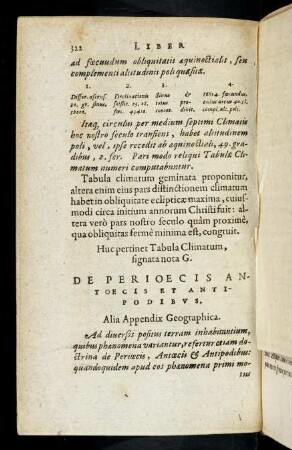 322 LIBER
ad fœcundum obliquitatis æquinoctialis, seu
complementi altitudinis poli quæsitæ.
1. 2. 3. 4.
Itaq; circulus per medium septimi Climatis
hoc nostro seculo transiens, habet altitudinem
poli, vel, ipse recedit ab æquinoctiali, 49. gra-
dibus, 2. scr. Pari modo reliqui Tabulæ Cli-
matum numeri computabuntur.
Tabula climatum geminata proponitur,
altera enim eius pars distinctionem climatum
habet in obliquitate eclipticæ maxima, cuius-
modi circa initium annorum Christi fuit: al-
tera verò pars nostro seculo quàm proximè,
qua obliquitas fermè minima est, congruit.
Huc pertinet Tabula Climatum,
signata nota G.
DE PERIOECIS AN-
TOECIS ET ANTI-
PODIBVS.
Alia Appendix Geographica.
Ad diuersos positus terram inhabitantium,
quibus phænomena variantur, refertur etiam do-
ctrina de Periœcis, Antœcis & Antipodibus:
quandoquidem apud eos phænomena primi mo-
tus